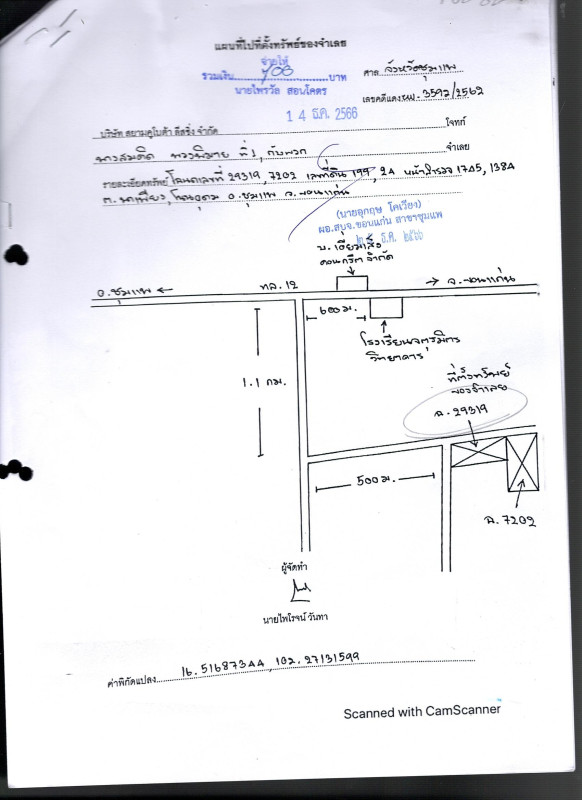 แผนที่ไปที่ตั้งทรัพย์ของจำเลย
จ่ายให้
รวมเงิน 700 บาท
นายไพรวัล สอนโคตร
14 ธ.ค. 2566
ศาล จังหวัดชุมแพ
เลขคดีแดง ผบ. 3592/2562
บริษัท สยามคูโบต้า ลีสซิ่ง จำกัด โจทก์
นางสมคิด ที่ 1, กับพวก จำเลย
รายละเอียดทรัพย์ โฉนดเลขที่ 29319, 7202 เลขที่ดิน 199, 24 หน้าสำรวจ 1745, 1384
ต. นาเพียง, โนนอุดม อ. ชุมแพ จ. ขอนแก่น
(นายอุกฤษ โคเวียง)
ผอ.สบจ.ขอนแก่น สาขาชุมแพ
ธ.ค. ๒๕๖๖
บ. เฮียเม้ง
คอนกรีต จำกัด
อ. ชุมแพ ←
ทล. 12
→ จ. ขอนแก่น
600 ม.
โรงเรียนจตุรมิตร
วิทยาคาร
1.1 กม.
ที่ตั้งทรัพย์
ของจำเลย
ฉ. 29319
500 ม.
ฉ. 7202
ผู้จัดทำ
นายไพโรจน์ วันทา
ค่าพิกัดแปลง 16.51687344, 102.27131599
Scanned with CamScanner